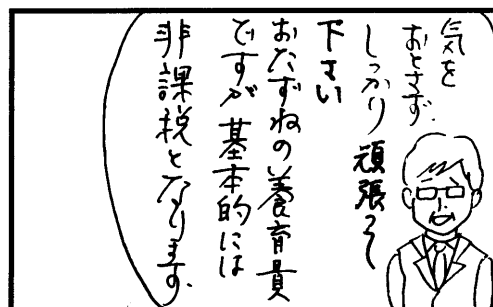 気を
おとさず、
しっかり頑張って
下さい
おたずねの養育費
ですが基本的には
非課税となります。